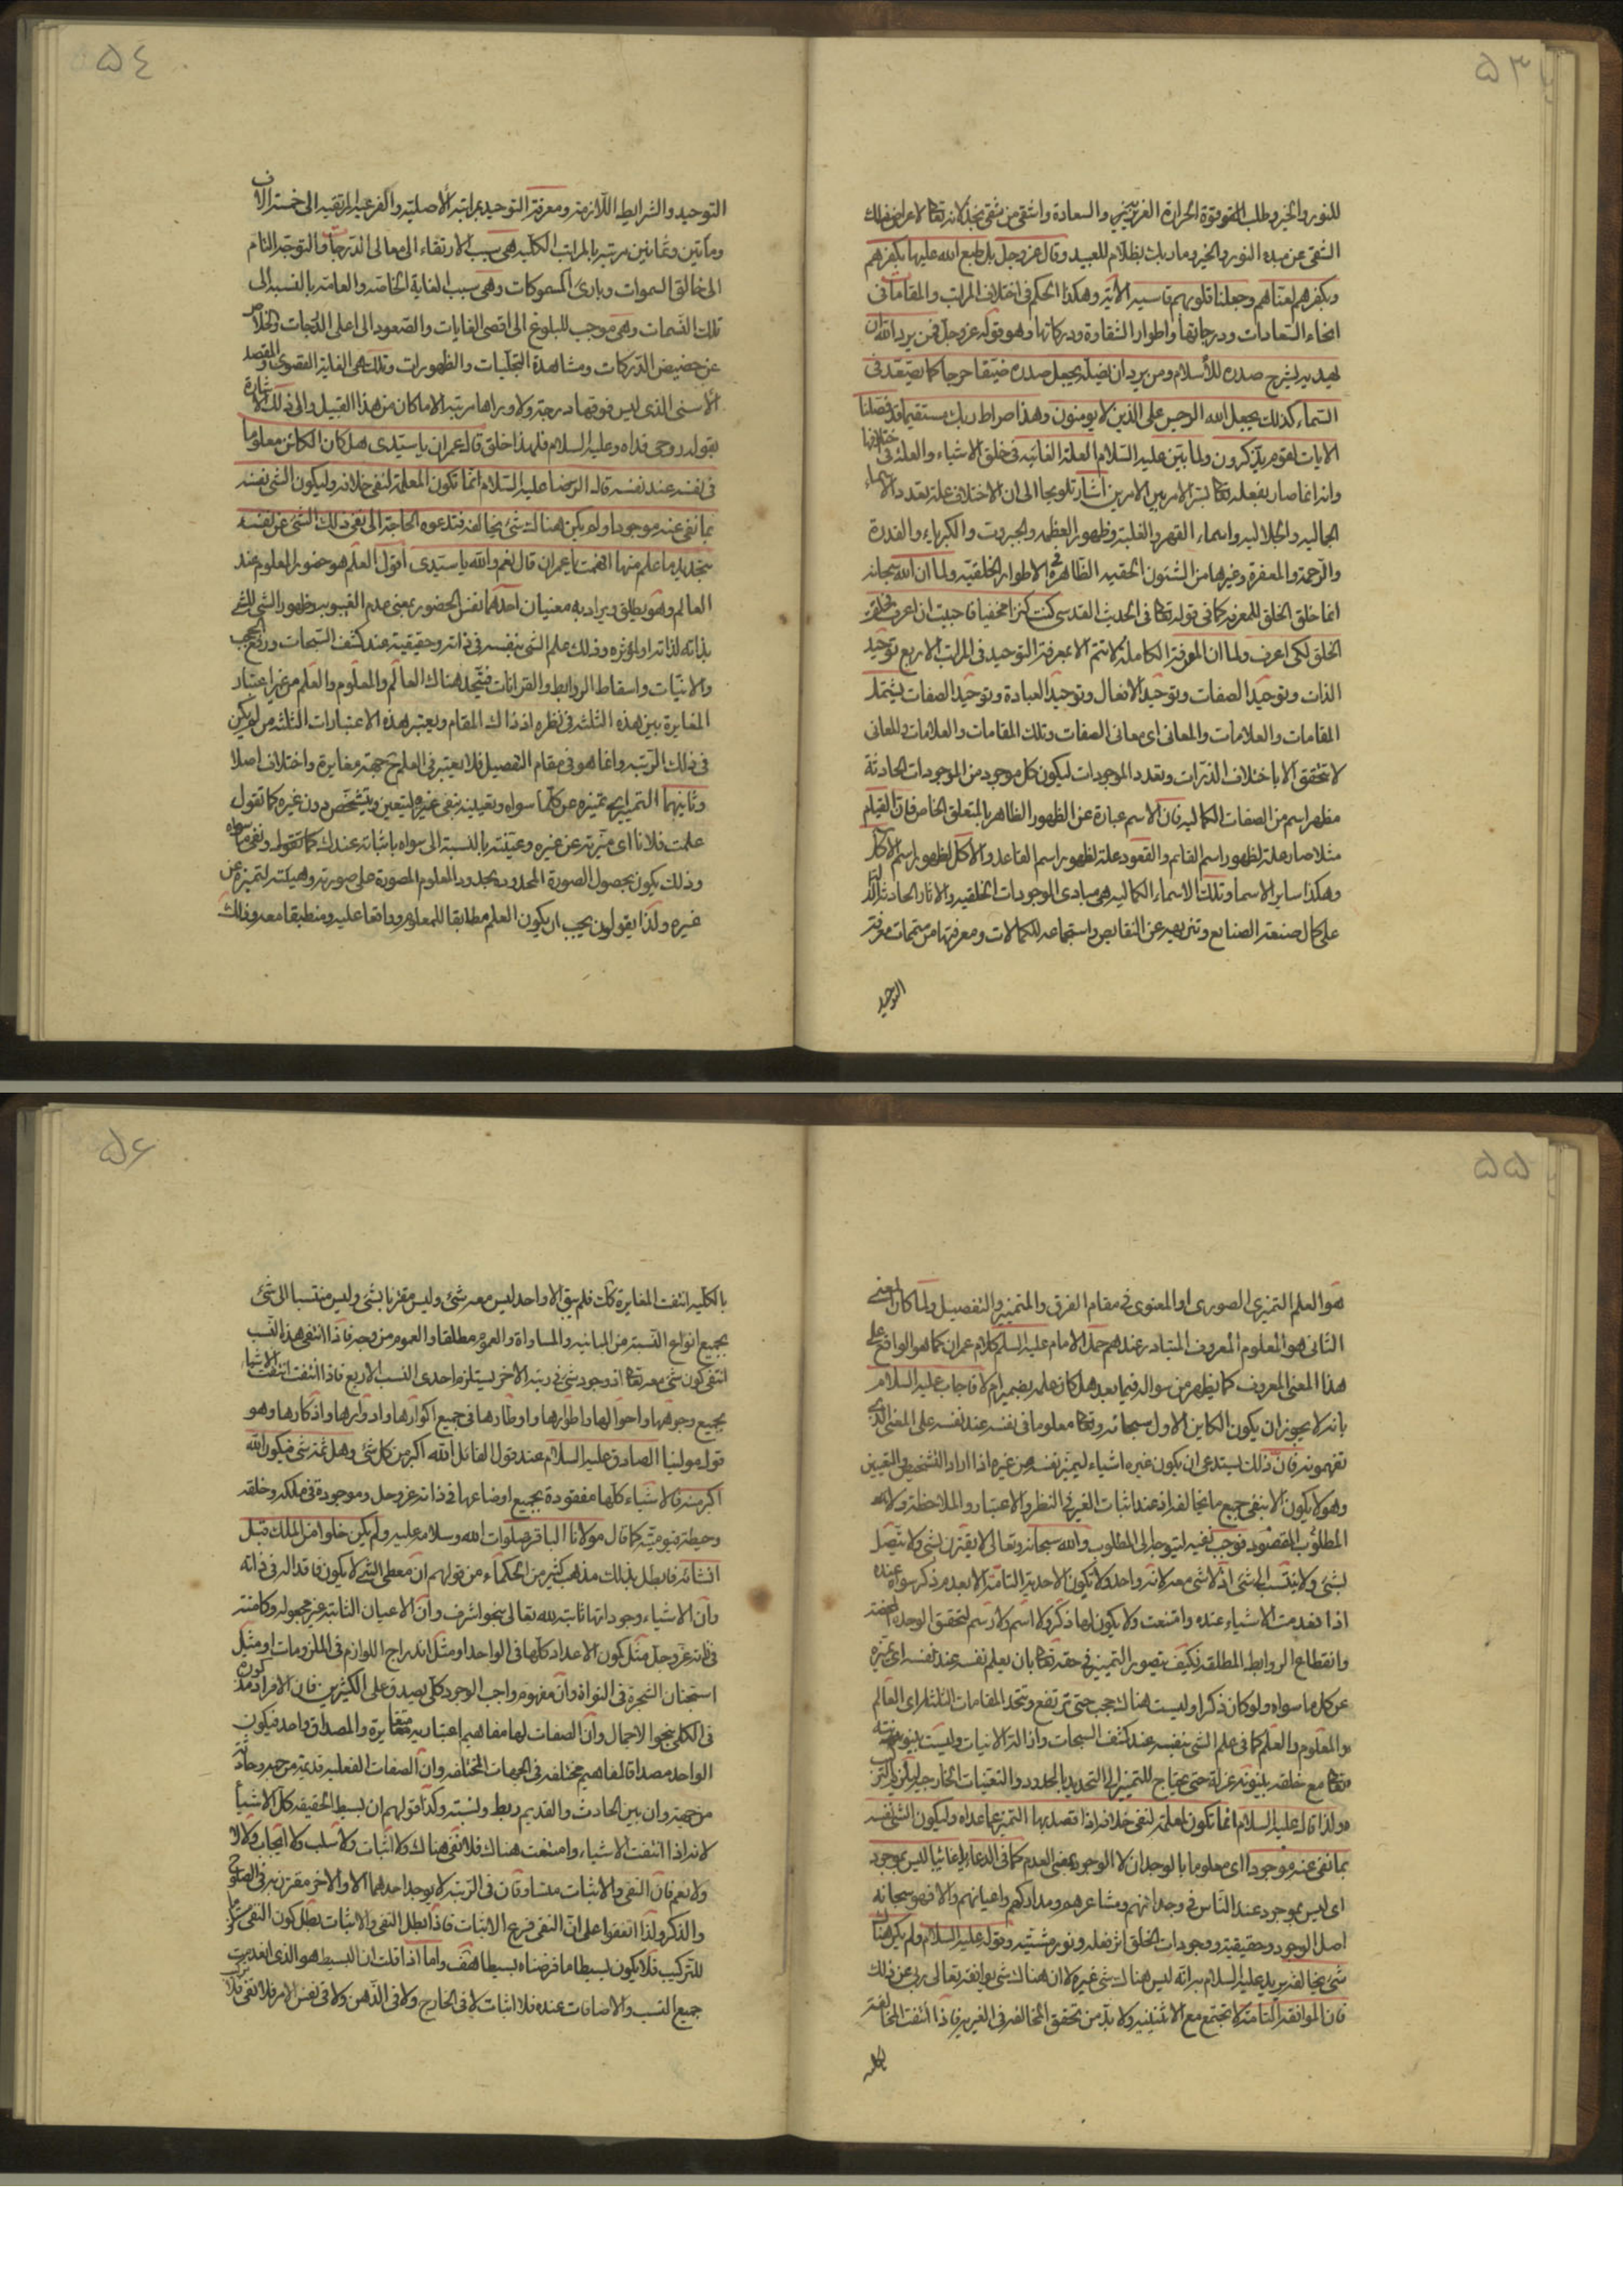 ۵۳
للنور والخير وطلب القوة الحرارة الغريزي والسعادة واشقى من شقى لانه تعالى لاعراض ذلك
الشقى عن مبدء النور والخير وما ربك بظلام للعبيد وقال عز وجل بل طبع الله عليها بكفرهم
وبكفرهم لعناهم وجعلنا قلوبهم قاسية الآية وهكذا الحكم فى اختلاف المراتب والمقامات فى
انحاء السعادات ودرجاتها واطوار الشقاوة ودركاتها وهو قوله عز وجل فمن يرد الله ان
يهديه يشرح صدره للأسلام ومن يرد ان يضله يجعل صدره ضيقا حرجا كانما يصعد فى
السماء كذلك يجعل الله الرجس على الذين لا يومنون وهذا صراط ربك مستقيما قد فصلنا
الايات لقوم يذكرون ولما بين عليه السلام العلة الغائيه فى خلق الاشياء والعلة فى اختلافها
وانه انما صار بفعله تعالى بسر الامر بين الامرين اشار تلويحا الى ان الاختلاف علة تعدد الاسماء
الجماليه والجلاليه واسماء القهر والغلبة وظهور العظمه والجبروت والكبرياء والقدرة
والرحمة والمغفرة وغيرها من الشئون الحقيه الظاهرة فى الاطوار الخلقية ولما ان الله سبحانه
انما خلق الخلق للمعرفه كما فى قوله تعالى فى الحديث القدسى كنت كنزا مخفيا فاحببت ان اعرف فخلقت
الخلق لكى اعرف ولما ان المعرفة الكاملة لا تتم الا بمعرفة التوحيد فى المراتب الاربع توحيد
الذات وتوحيد الصفات وتوحيد الافعال وتوحيد العبادة وتوحيد الصفات يشتمل
المقامات والعلامات والمعانى اى معانى الصفات وتلك المقامات والعلامات والمعانى
لا تتحقق الا باختلاف الذرات وتعدد الموجودات ليكون كل موجود من الموجودات الحادثة
مظهر اسم من الصفات الكماليه فان الاسم عبارة عن الظهور الظاهر بالمتعلق الخاص فان القيام
مثلا صار علة لظهور اسم القائم والقعود علة لظهور اسم القاعد والاكل لظهور اسم الآكل
وهكذا ساير الاسما وتلك الاسماء الكماليه هى مبادى الموجودات الخلقيه والاثار الحادثه الدالة
على كمال صنعة الصانع وتنزيهه عن النقايص واستجماعه للكمالات ومعرفتها من متممات معرفة
التوحيد
۵٤
التوحيد والشرايط اللازمة ومعرفة التوحيد بمراتبه الأصلية والفرعيه المرتقيه الى خمسة الاف
ومأتين وثمانين مرتبه بالمراتب الكليه هى سبب الارتقاء الى معالى الدرجات والتوجه التام
الى خالق السموات وبارئ المسموكات وهى سبب لغاية الخاصه والعامة بالنسبه الى
تلك القسمات وهى موجب للبلوغ الى اقصى الغايات والصعود الى اعلى الدرجات والخلاص
عن حضيض الدركات ومشاهدة التجليات والظهورات وتلك هى الغاية القصوى والمقصد
الأسنى الذى ليس فوقها درجة ولا وراها مرتبة الامكان من هذا القبيل والى ذلك الاشارة
بقوله روحى فداه وعليه السلام فلهذا خلق قال عمران يا سيدى هل كان الكائن معلوما
فى نفسه عند نفسه قال الرضا عليه السلام انما تكون المعلمة لنفى خلافه وليكون الشى نفسه
بما نفى عنه موجودا ولم يكن هنالك شى يخالفه فتدعوه الحاجة الى نفى ذلك الشئ عن نفسه
بتحديد ما علم منها افهمت يا عمران قال نعم والله يا سيدى اقول العلم هو حضور المعلوم عند
العالم وهو يطلق ويراد به معنيان احدهما نفس الحضور بمعنى عدم الغيبوبه وظهور الشى للشئ
بذاته لذاته او لمؤثره وذلك علم الشى بنفسه فى ذاته وحقيقته عند كشف السبحات ورفع الحجب
والانيات واسقاط الروابط والقرانات فيتحد هناك العالم والمعلوم والعلم من غير اعتبار
المغايرة بين هذه الثلثه فى نظره اذ ذاك المقام ويعتبر هذه الاعتبارات الثلثه من لم يكن
فى ذلك الرتبه وانما هو فى مقام التفصيل فلا يعتبر فى العلم ح جهة مغايرة واختلاف اصلا
وثانيهما التمييز اى تميزه عن كلما سواه وتعيينه بنفى غيره ليتعين ويتشخص دون غيره كما تقول
علمت فلانا اى ميزته عن غيره وعينته بالنسبة الى سواه باثباته عندك كما تقوله ونفى ما سواه
وذلك يكون بحصول الصورة المحدوده بحدود المعلوم المصورة على صورته وهيئته لتميزه عن
غيره ولذا يقولون يجب ان يكون العلم مطابقا للمعلوم وواقعا عليه ومنطبقا معه وذلك
۵۵
هو العلم التميزى الصورى او المعنوى فى مقام الفرق والتميز والتفصيل ولما كان المعنى
الثانى هو المعلوم المعروف المتبادر عندهم حمل الامام عليه السلم كلام عمران كما هو الواقع على
هذا المعنى المعروف كما يظهر من سواله فيما بعد هل كان علمه بضمير ام لا فاجاب عليه السلام
بانه لا يجوز ان يكون الكاين الاول سبحانه وتعالى معلوما فى نفسه عند نفسه على المعنى الذى
تفهمونه فان ذلك يستدعى ان يكون غيره اشياء ليميز نفسه من غيره اذا اراد التشخيص والتعيين
وهو لا يكون الا بنفى جميع ما يخالفه اذ عند اثبات الغير فى النظر والاعتبار والملاحظة
المطلوب المقصود فوجب نفيه ليتوجه الى المطلوب والله سبحانه وتعالى لا يقترن بشى ولا يتصل
بشئ ولا ينتسب الى شئ اذ لا شى معه لانه واحد ولا يكون الاحدية التامة الا بعدم ذكر سواه عنده
اذا فقدمت الاشياء عنده وامتنعت ولا يكون لها ذكر ولا اسم ولا رسم لتحقق الوحدة المحضه
وانقطاع الروابط المطلقه فكيف يتصور التميز فى حقه تعالى بان يعلم نفسه عند نفسه اى يميزه
عن كل ما سواه ولو كان ذكرا وليست هناك حجب حتى ترتفع وتتحد المقامات الثلثه اى العالم
والمعلوم والعلم كما فى علم الشى بنفسه عند كشف السبحات وازالة الانيات وليست بينونته
تعالى مع خلقه بينونة عزلة حتى يحتاج للتميز الى التحديد بالحدود والتعينات الخارجيه
ولذا قال عليه السلام انما تكون المعلمة لنفى خلافه اذا قصد بها التميز عما عداه وليكون الشى نفسه
بما نفى عنه موجودا اى معلوما بالوجدان لا الوجود بمعنى العدم كما فى الدعاء يا غائبا ليس بموجود
اى ليس بموجود عند الناس فى وجدانهم ومشاعرهم ومداركهم واعيانهم والا فهو سبحانه
اصل الوجود وحقيقته ووجودات الخلق اثر فعله ونور مشيته وقوله عليه السلام ولم يكن هناك
شئ يخالفه يريد عليه السلام برانه ليس هناك شئ غيره لا ان هناك شى يوافقه تعالى ربى عن ذلك
فان الموافقه التامة لا تجتمع مع الاثنينيه ولا بد من تحقق المخالفه فى الغيريه فاذا انتفت المخالفه
بالكليه
۵۶
بالكليه انتفت المغايرة كك فلم يبق الا واحد ليس معه شئ وليس مقترنا بشئ وليس منتسبا الى شئ
بجميع انواع النسبة من المباينه والمساواة والعموم مطلقا والعموم من وجه فاذا انتفى هذه النسب
انتفى كون شئ معه تعالى اذ وجود شئ فى رتبه الاخر يستلزم احدى النسب الاربع فاذا انتفت انتفت الاشياء
بجميع وجوهها واحوالها واطوارها واوطارها فى جميع اكوارها وادوارها واذكارها وهو
قول مولينا الصادق عليه السلام عند قول القائل الله اكبر من كل شئ وهل ثمة شى فيكون الله
اكبر منه فالاشياء كلها مفقودة بجميع اوضاعها فى ذاته عز وجل وموجودة فى ملكه وخلقه
وحيطة قيوميته كما قال مولانا الباقر صلوات الله وسلامه عليه ولم يكن خلوا من الملك قبل
انشائه فابطل بذلك مذهب كثير من الحكماء من قولهم ان معطى الشئ لا يكون فاقدا له فى ذاته
وان الاشياء وجوداتها ثابتة لله تعالى بنحو اشرف وان الاعيان الثابتة غير مجعولة وكامنة
فى ذاته عز وجل مثل كون الاعداد كلها فى الواحد او مثل اندراج اللوازم فى الملزومات او مثل
استجنان الشجرة فى النواة وان مفهوم واجب الوجود كلى يصدق على الكثيرين فان الافراد مذكورة
فى الكلى بنحو الاجمال وان الصفات لها مفاهيم اعتباريه متغايرة والمصداق واحد فيكون
الواحد مصداقا لمفاهيم مختلفه فى الجهات المختلفه وان الصفات الفعلية قديمة من جهة وحادثة
من جهة وان بين الحادث والقديم ربط ونسبة وكذا قولهم ان بسيط الحقيقه كل الاشياء
لانه اذا انتفت الاشياء وامتنعت هناك فلا نفى هناك ولا اثبات ولا سلب ولا ايجاب ولا لا
ولا نعم فان النفى والاثبات متساوقان فى الرتبه لا يوجد احدهما الا والاخر مقترن به فى
والذكر ولذا اتفقوا على ان النفى فرع الاثبات فاذا بطل النفى والاثبات بطل كون النفى
للتركيب فلا يكون بسيطا ما فرضناه بسيطا هف واما اذا قلت ان البسيط هو الذى انعدمت
جميع النسب والاضافات عنده فلا اثبات لا فى الخارج ولا فى الذهن ولا فى نفس الامر فلا نفى